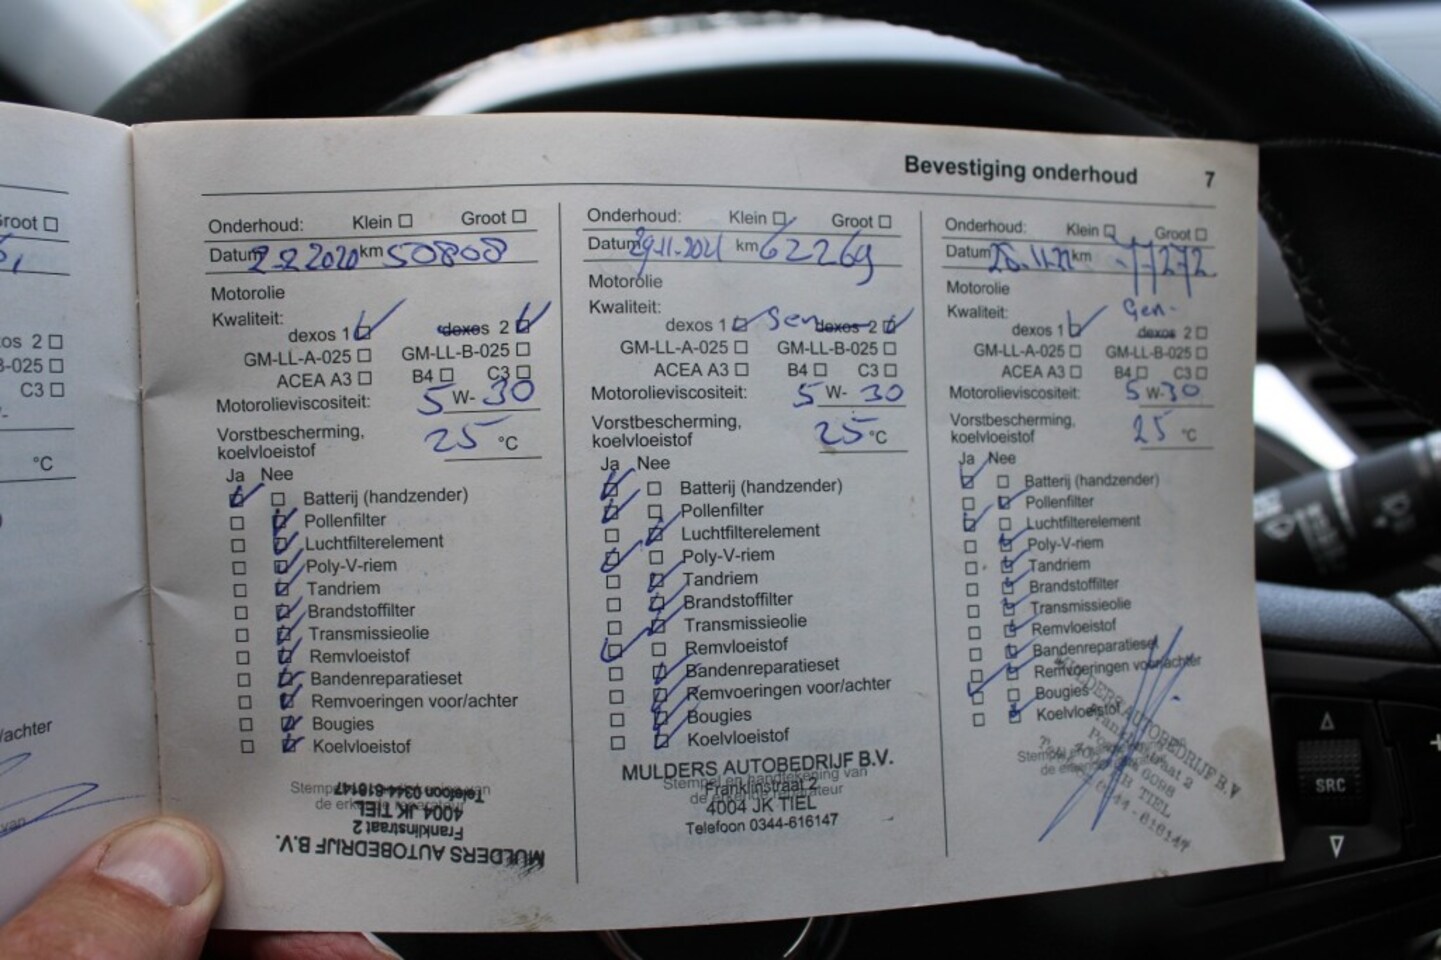 Bevestiging onderhoud 7
Groot
dexos 2
C3
°C
Onderhoud: Klein Groot
Datum 2-2 2020 km 50808
Motorolie
Kwaliteit:
dexos 1 dexos 2
GM-LL-A-025 GM-LL-B-025
ACEA A3 B4 C3
Motorolieviscositeit: 5 W- 30
Vorstbescherming,
koelvloeistof 25 °C
Ja Nee
Batterij (handzender)
Pollenfilter
Luchtfilterelement
Poly-V-riem
Tandriem
Brandstoffilter
Transmissieolie
Remvloeistof
Bandenreparatieset
Remvoeringen voor/achter
Bougies
Koelvloeistof
Stempel en handtekening van
de erkende reparateur
MULDERS AUTOBEDRIJF B.V.
Franklinstraat 2
4004 JK TIEL
Telefoon 0344-616147
Onderhoud: Klein Groot
Datum 29-11-2021 km 62269
Motorolie
Kwaliteit:
dexos 1 Gen dexos 2
GM-LL-A-025 GM-LL-B-025
ACEA A3 B4 C3
Motorolieviscositeit: 5 W- 30
Vorstbescherming,
koelvloeistof 25 °C
Ja Nee
Batterij (handzender)
Pollenfilter
Luchtfilterelement
Poly-V-riem
Tandriem
Brandstoffilter
Transmissieolie
Remvloeistof
Bandenreparatieset
Remvoeringen voor/achter
Bougies
Koelvloeistof
MULDERS AUTOBEDRIJF B.V.
Stempel en handtekening van
Franklinstraat 2
de erkende reparateur
4004 JK TIEL
Telefoon 0344-616147
Onderhoud: Klein Groot
Datum km 77272
Motorolie
Kwaliteit: Gen.
dexos 1 dexos 2
GM-LL-A-025 GM-LL-B-025
ACEA A3 B4 C3
Motorolieviscositeit: 5 W-30
Vorstbescherming,
koelvloeistof 25 °C
Ja Nee
Batterij (handzender)
Pollenfilter
Luchtfilterelement
Poly-V-riem
Tandriem
Brandstoffilter
Transmissieolie
Remvloeistof
Bandenreparatieset
Remvoeringen voor/achter
Bougies
Koelvloeistof
Stempel en
de
MULDERS AUTOBEDRIJF B.V
Franklinstraat 2
6098
TIEL
0344-616147
/achter
van
SRC